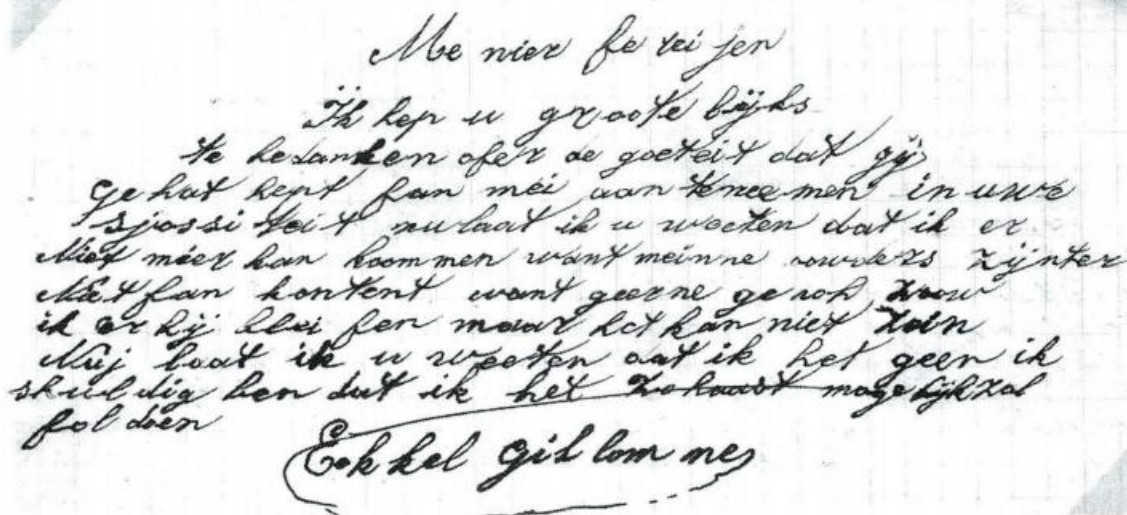 Me nier fe rei jen
Ik kep u groote bijks
te bedanken ofer de goeteit dat gij
ge hat kept fan mei aan tenee men in uwe
sjossi teit nu laat ik u weeten dat ik er
Niet meer kan koommen want meinne ouwders zijnter
Niet fan kontent want geerne genoh zouw
ik er bij blei fen maar het kan niet zoin
Nuj laat ik u weeten dat ik het geen ik
skuldig ben dat ik het zohaast mogelijk zal
fol doen
Eekkel gillom me